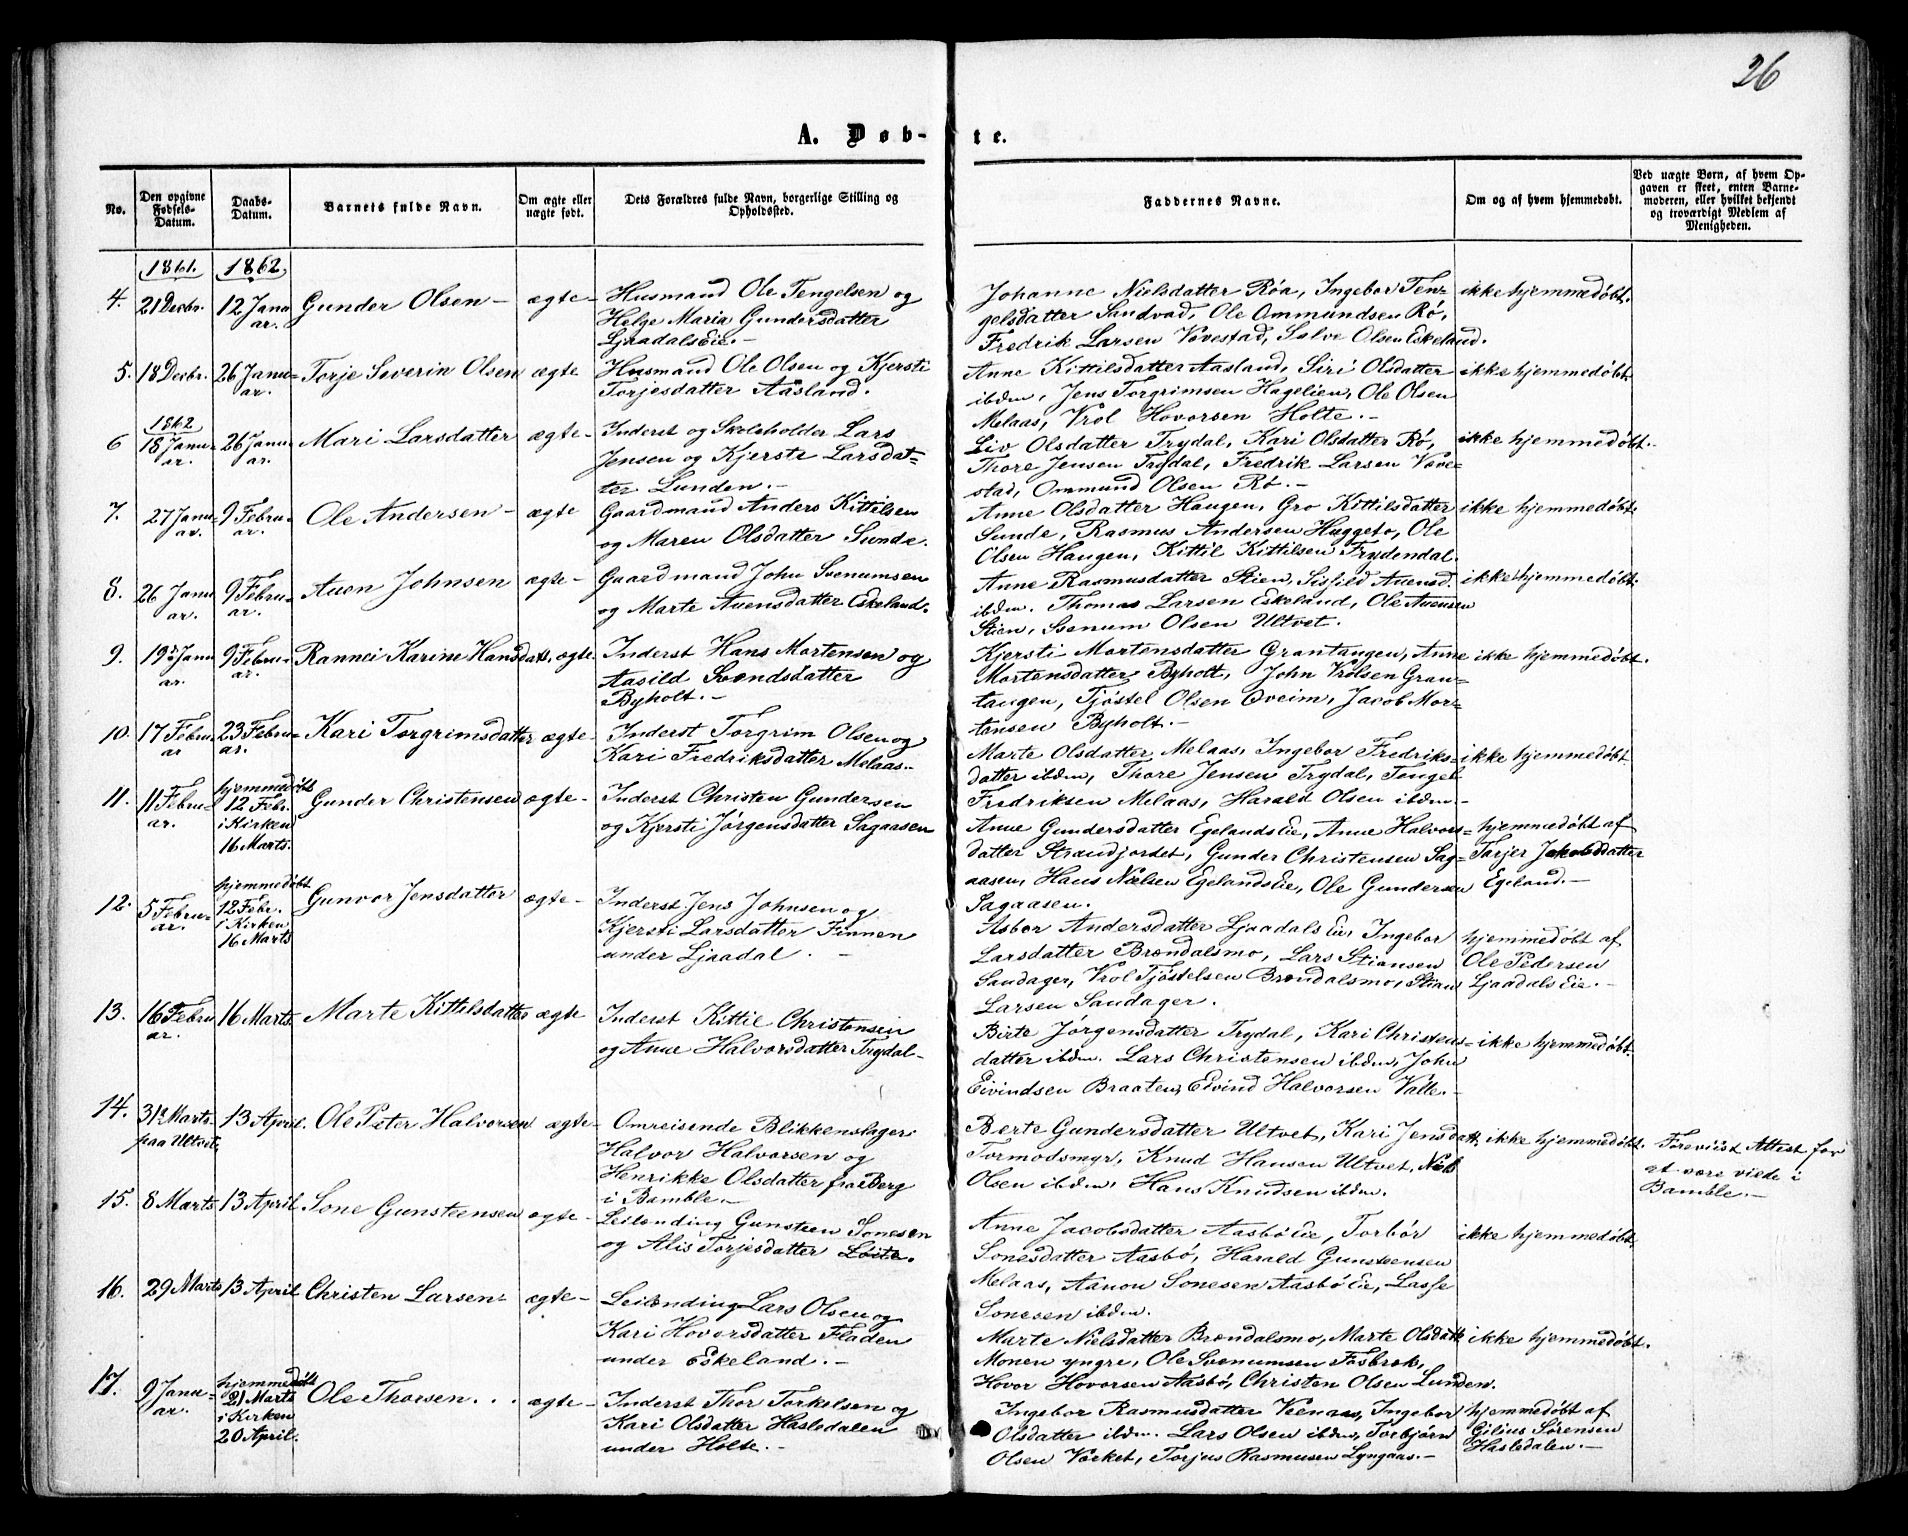 26
A. Døb-te.
No.
Den opgivne Fødsels-Datum.
Daabs-Datum.
Barnets fulde Navn.
Om ægte eller uægte født.
Dets Forældres fulde Navn, borgerlige Stilling og Opholdssted.
Faddernes Navne.
Om og af hvem hjemmedøbt.
Ved uægte Børn, af hvem Opgaven er skeet, enten Barnemoderen, eller hvilket bekjendt og troværdigt Medlem af Menigheden.
1861. 1862.
4. 21 Decbr. 12 Januar. Gunder Olsen – ægte –
Husmand Ole Tengelsen og
Helge Maria Gundersdatter
Ljaadals Eie. –
Johanne Nielsdatter Røa, Ingebor Ten-
gelsdatter Sandvad, Ole Ommundsen Rø,
Fredrik Larsen Vovestad, Solve Olsen Eskeland.
ikke hjemmedøbt.
5. 18 Decbr. 26 Januar. Torje Severin Olsen ægte
Husmand Ole Olsen og Kjersti
Torjesdatter Aasland.
Anne Kittilsdatter Aasland, Siri Olsdatter
ibdm, Jens Torgrimsen Hagelien, Ole Olsen
Melaas, Vrol Hovorsen Holte. –
ikke hjemmedøbt.
1862
6 18 Januar. 26 Januar. Mari Larsdatter ægte –
Inderst og Skoleholder Lars
Jensen og Kjersti Larsdat-
ter Lunden. –
Liv Olsdatter Trydal, Kari Olsdatter Rø,
Thore Jensen Trydal, Fredrik Larsen Vove-
stad, Ommund Olsen Rø. –
ikke hjemmedøbt.
7. 27 Januar. 9 Februar. Ole Andersen – ægte
Gaardmand Anders Kittilsen
og Maren Olsdatter Sunde.
Anne Olsdatter Haugen, Gro Kittilsdatter
Sunde, Rasmus Andersen Huggeto, Ole
Olsen Haugen, Kittil Kittilsen Frydendal.
ikke hjemmedøbt.
8. 26 Januar. 9 Februar. Auen Johnsen ægte –
Gaardmand John Svenumsen
og Marte Auensdatter Eskeland.
Anne Rasmusdatter Stien, Sisfild Auensd.
ibdm. Thomas Larsen Eskeland, Ole Auensen
Stien, Svenum Olsen Ultvet.
ikke hjemmedøbt.
9. 19 Januar. 9 Februar. Rannei Karine Hansdatr, ægte.
Inderst Hans Mortensen og
Aasild Svendsdatter
Byholt. –
Kjersti Mortensdatter Grantangen, Anne
Mortensdatter Byholt, John Vrolsen Gran-
tangen, Tjøstel Olsen Oveim, Jacob Mor-
tensen Byholt. –
ikke hjemmedøbt.
10. 17 Februar 23 Februar. Kari Torgrimsdatter ægte –
Inderst Torgrim Olsen og
Kari Fredriksdatter Melaas –
Marte Olsdatter Melaas, Ingebor Fredriks-
datter ibdm, Thore Jensen Trydal, Tengel
Fredriksen Melaas, Harald Olsen ibdm. –
ikke hjemmedøbt.
11. 11 Februar. hjemmedøbt 12 Feb. i Kirken 16 Marts. Gunder Christensen ægte –
Inderst Christen Gundersen
og Kjersti Jørgensdatter Sagaasen
Anne Gundersdatter Egelands Eie, Anne Halvors-
datter Strandjordet, Gunder Christensen Sag-
aasen, Hans Nielsen Egelands Eie, Ole Gundersen
Sagaasen.
hjemmedøbt af
Tarjer Jakobsdatter
Egeland. –
12. 5 Februar. hjemmedøbt 12 Febr. i Kirken 16 Marts Gunvor Jensdatter ægte –
Inderst Jens Johnsen og
Kjersti Larsdatter Finnen
under Ljaadal. –
Asbor Andersdatter Ljaadals Eie, Ingebor
Larsdatter Brøndalsmo, Lars Stiansen
Sandager, Vrol Tjøstelsen Brøndalsmo, Stian
Larsen Sandager.
hjemmedøbt af
Ole Pedersen
Ljaadals Eie. –
13. 16 Februar. 16 Marts. Marte Kittilsdatter ægte
Inderst Kittil Christensen
og Anne Halvorsdatter Trydal –
Birte Jørgensdatter Trydal, Kari Christens-
datter ibdm. Lars Christensen ibdm, John
Eivindsen Braaten, Eivind Halvorsen Valle. –
ikke hjemmedøbt.
14. 31te Marts. paa Ultvet. 13 April. Ole Peter Halvorsen ægte –
Omreisende Blikkenslager
Halvor Halvorsen og
Henrikke Olsdatter fra Berg
i Bamble. –
Berte Gundersdatter Ultvet, Kari Jensdatr.
Tormodsmyr, Knud Hansen Ultvet, Niels
Olsen ibdm, Hans Knudsen ibdm.
ikke hjemmedøbt.
Foreviist Attest for
at være viede i
Bamble. –
15. 8 Marts 13 April Sone Gunsteensen ægte –
Leilending Gunsteen Sonesen
og Alis Torjesdatter Løite.
Anne Jacobsdatter Aasbø Eie, Torbør
Sonesdatter Aasbø, Harald Gunsteensen
Melaas, Aanon Sonesen Aasbø Eie, Lasse
Sonesen ibdm.
ikke hjemmedøbt.
16. 29 Marts 13 April Christen Larsen ægte –
Leilending Lars Olsen og
Kari Hovorsdatter Fladen
under Eskeland. –
Marte Nielsdatter Brøndalsmo, Marte Olsdatr
Monen yngre, Ole Svenumsen Fosbrok,
Hovor Hovorsen Aasbø, Christen Olsen Lunden.
ikke hjemmedøbt.
17. 9 Januar. hjemmedøbt 21 Marts i Kirken 20 April. Ole Thorsen. . . ægte –
Inderst Thor Torkelsen og
Kari Olsdatter Hasledalen
under Holte. –
Ingebor Rasmusdatter Veenaas, Ingebor
Olsdatter ibdm. Lars Olsen ibdm, Torbjørn
Olsen Værket, Torjus Rasmusen Lyngaas. –
hjemmedøbt af
Gilius Sørensen
Hasledalen. –